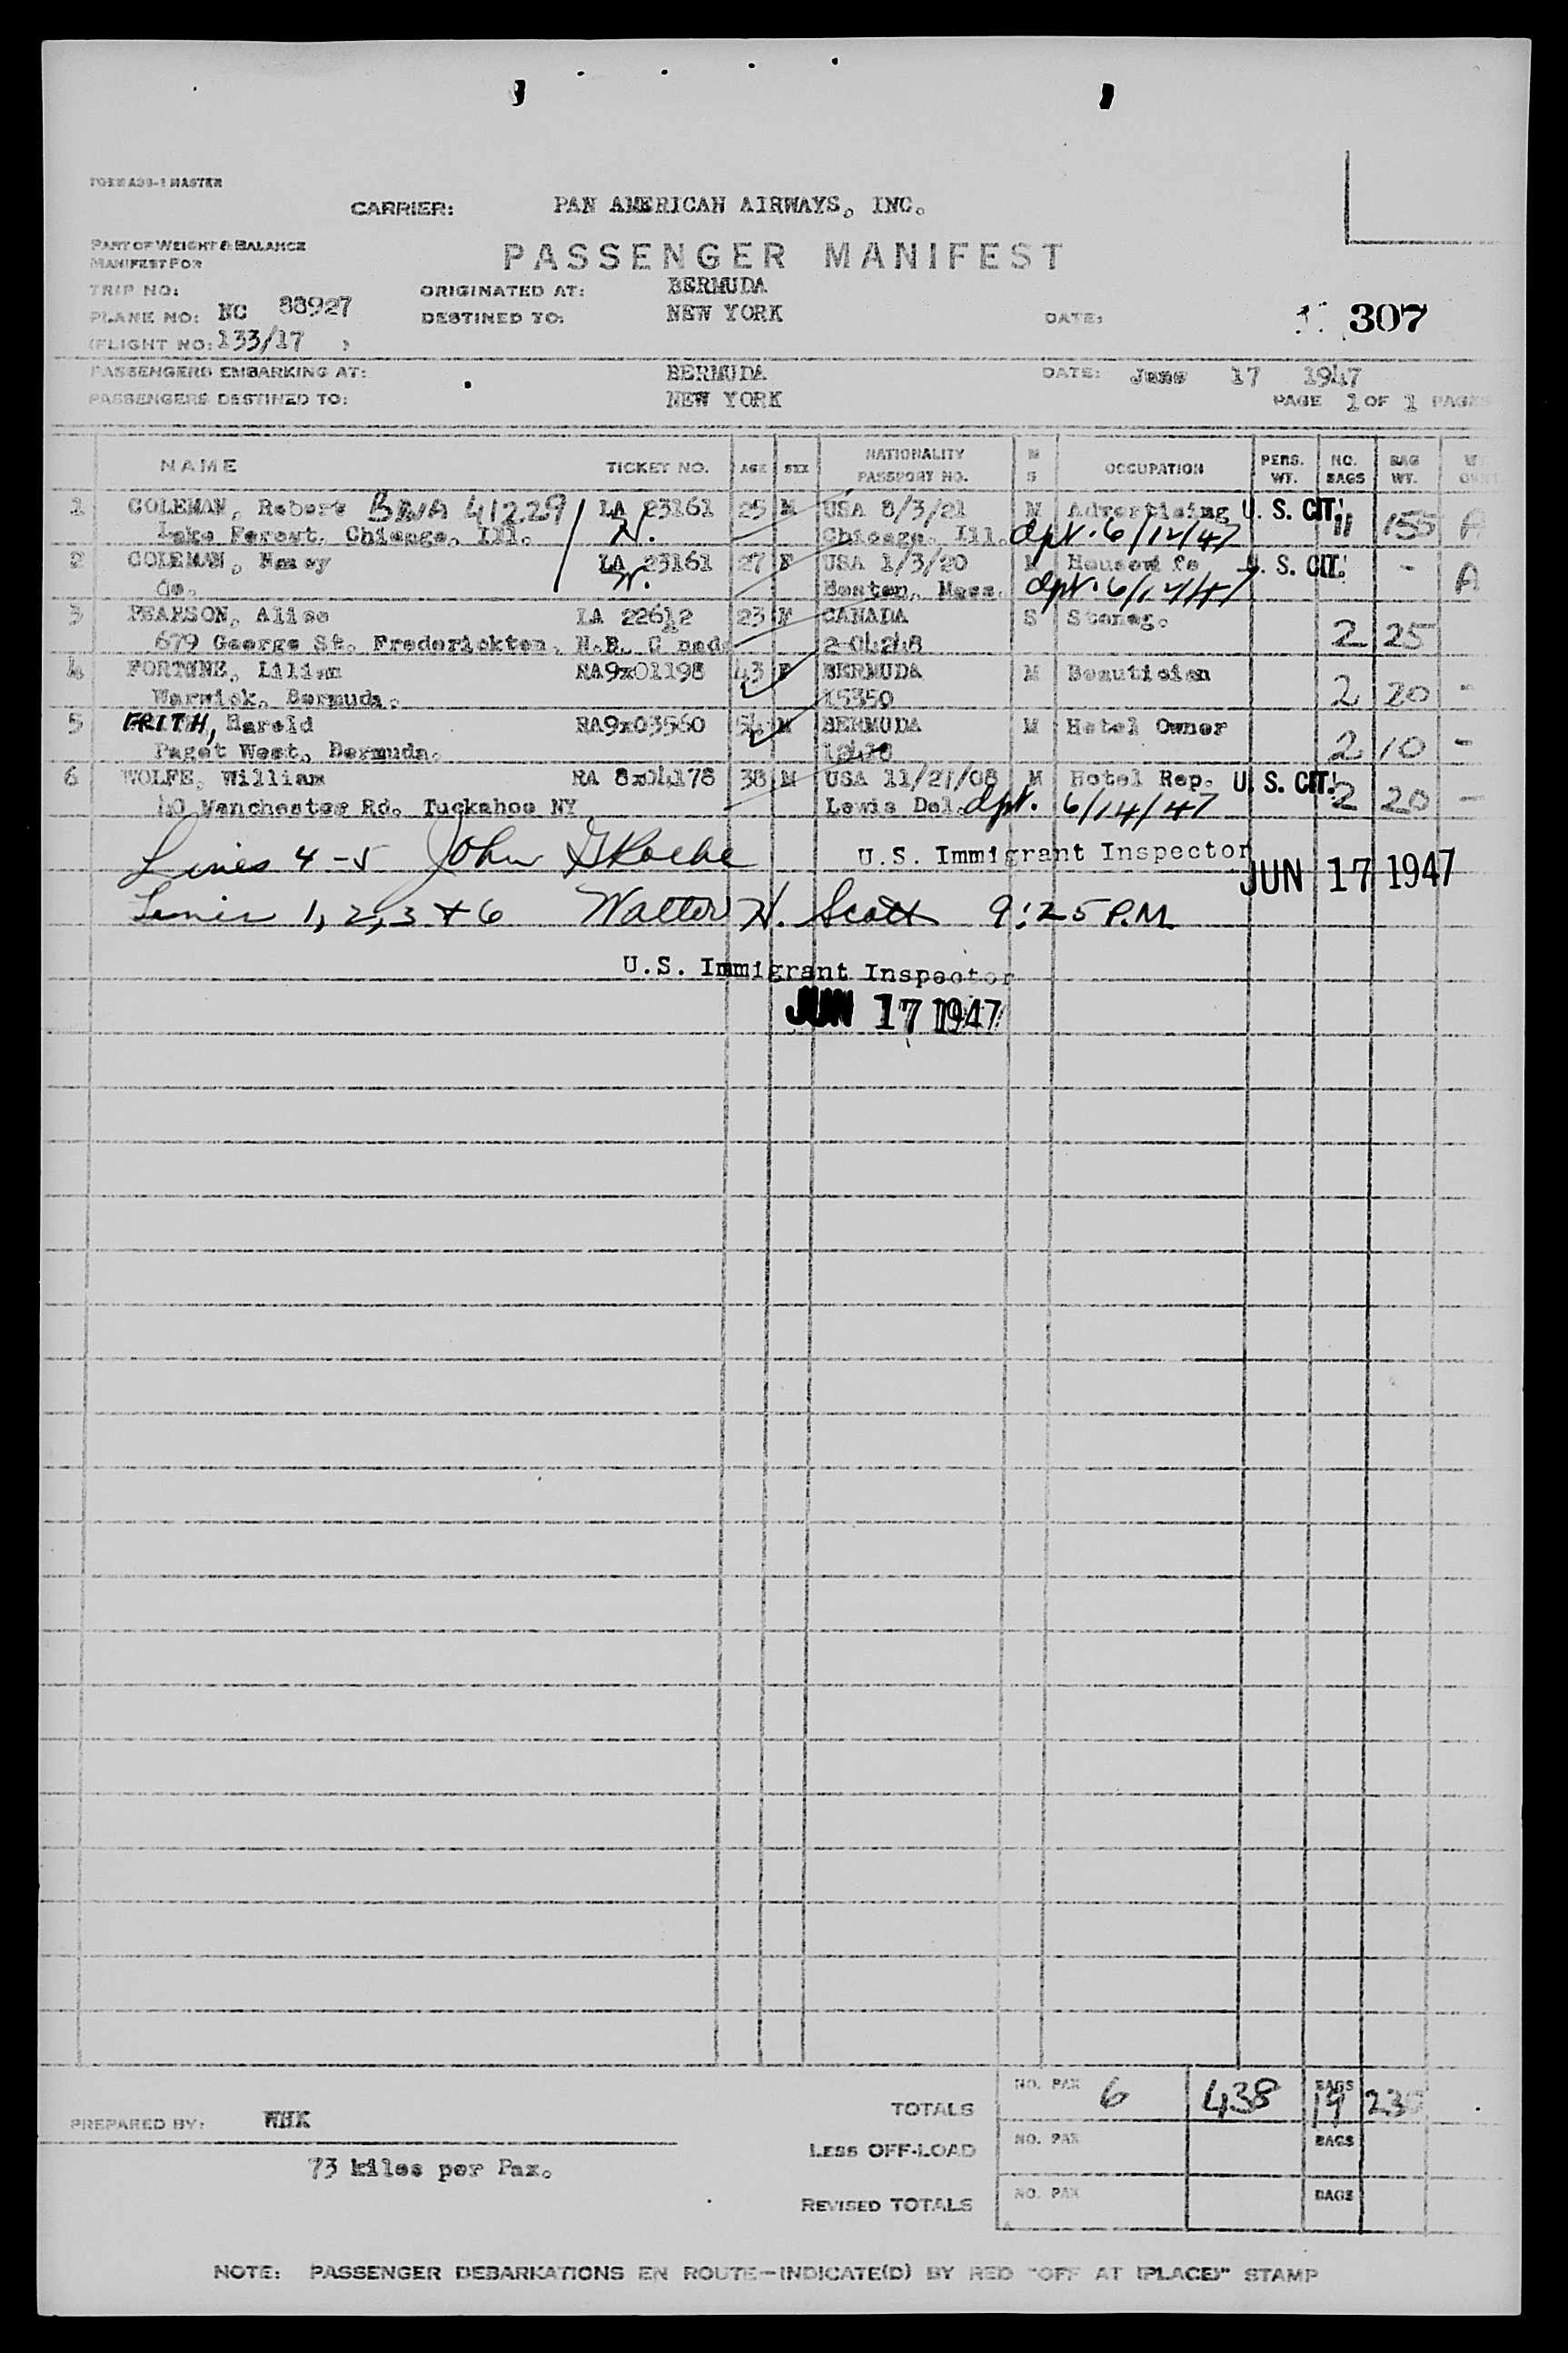 FORM ADS-1 MASTER
CARRIER: PAN AMERICAN AIRWAYS, INC.
PART OF WEIGHT & BALANCE
MANIFEST FOR
PASSENGER MANIFEST
TRIP NO: ORIGINATED AT: BERMUDA
PLANE NO: NC 88927 DESTINED TO: NEW YORK DATE: 307
(FLIGHT NO: 133/17 )
PASSENGERS EMBARKING AT: BERMUDA DATE: June 17 1947
PASSENGERS DESTINED TO: NEW YORK PAGE 1 OF 1 PAGES
NAME TICKET NO. AGE SEX NATIONALITY PASSPORT NO. M S OCCUPATION PERS. WT. NO. BAGS BAG WT.
1 COLEMAN, Robert BNA 41229 LA 23161 25 M USA 8/3/21 M Advertising U. S. CIT. 11 155 A
Lake Forest, Chicago, Ill. N. Chicago, Ill. dpt. 6/12/47
2 COLEMAN, Nancy LA 23161 27 F USA 1/3/20 M Housewife U. S. CIT. - A
do. Boston, Mass. dpt. 6/12/47
3 PEARSON, Alise LA 22612 23 F CANADA S Stenog. 2 25
679 George St. Frederickton, N.B. C nad 2-04248
4 FORTUNE, Lilian RA9x01198 43 F BERMUDA M Beautician 2 20 -
Warwick, Bermuda. 15350
5 FRITH, Harold RA9x03560 54 M BERMUDA M Hotel Owner 2 10 -
Paget West, Bermuda.
6 WOLFE, William RA 8x04178 38 M USA 11/27/08 M Hotel Rep. U. S. CIT. 2 20 -
40 Manchester Rd. Tuckahoe NY Lewis Del. dpt. 6/14/47
Lines 4-5 John G Roche U.S. Immigrant Inspector
JUN 17 1947
Lines 1, 2, 3 + 6 Walter H. Scott 9:25 P.M.
U.S. Immigrant Inspector
JUN 17 1947
TOTALS NO. PAX 6 438 BAGS 19
PREPARED BY: WHK
LESS OFF-LOAD NO. PAX BAGS
73 kilos per Pax.
REVISED TOTALS NO. PAX BAGS
NOTE: PASSENGER DEBARKATIONS EN ROUTE—INDICATE(D) BY RED "OFF AT (PLACE)" STAMP